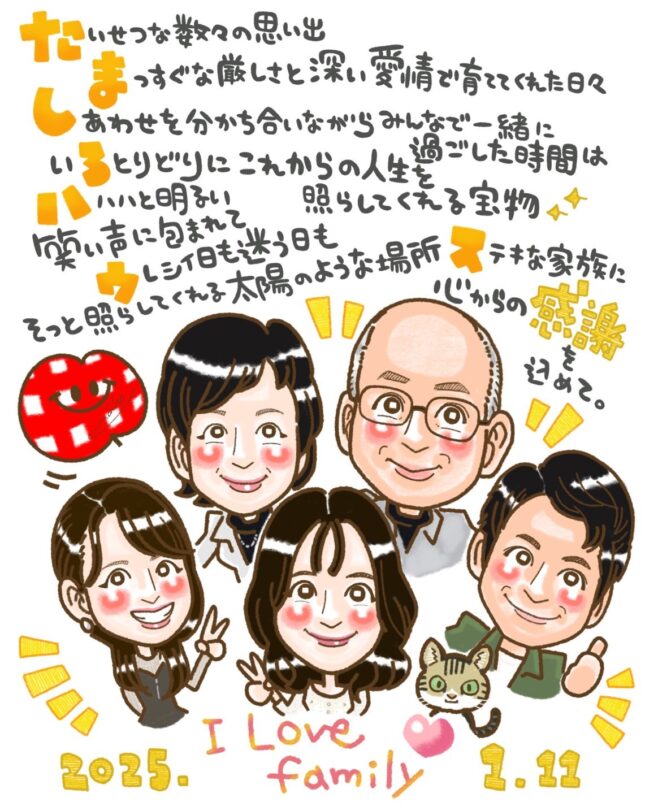 たいせつな数々の思い出
まっすぐな厳しさと深い愛情で育ててくれた日々
しあわせを分かち合いながらみんなで一緒に
過ごした時間は
いろとりどりにこれからの人生を
照らしてくれる宝物
ハハハと明るい
笑い声に包まれて
ウレシイ日も迷う日も
そっと照らしてくれる太陽のような場所
ステキな家族に
心からの感謝
を込めて。
I Love
family
2025. 1.11